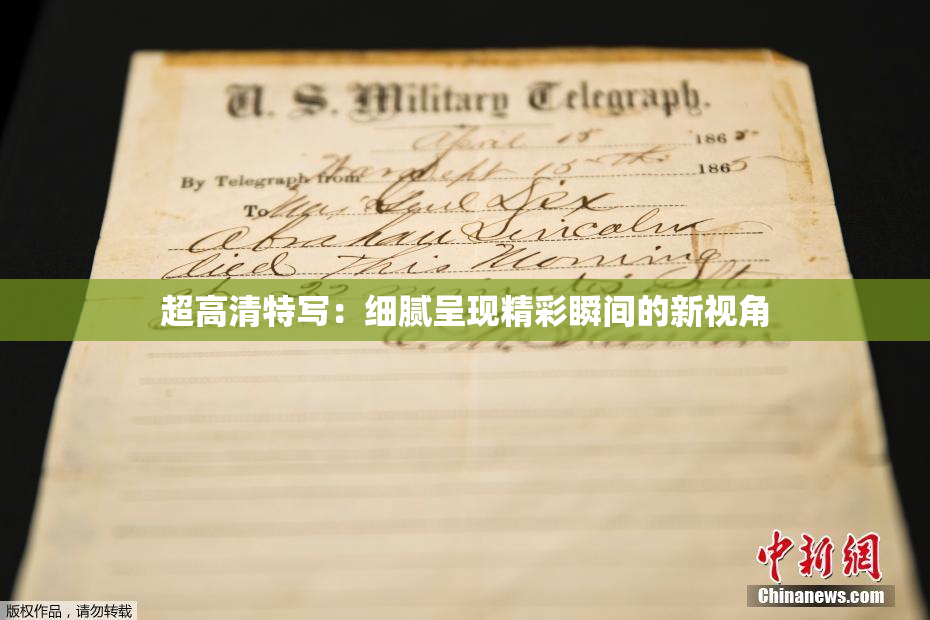 U. S. Military Telegraph.
April 15 1865
By Telegraph from War Dept 15th 1865
To Maj Genl Dix
Abraham Lincoln
died This Morning
at 22 minutes after
超高清特写：细腻呈现精彩瞬间的新视角
E. M. Stanton
中新网
Chinanews.com
版权作品，请勿转载